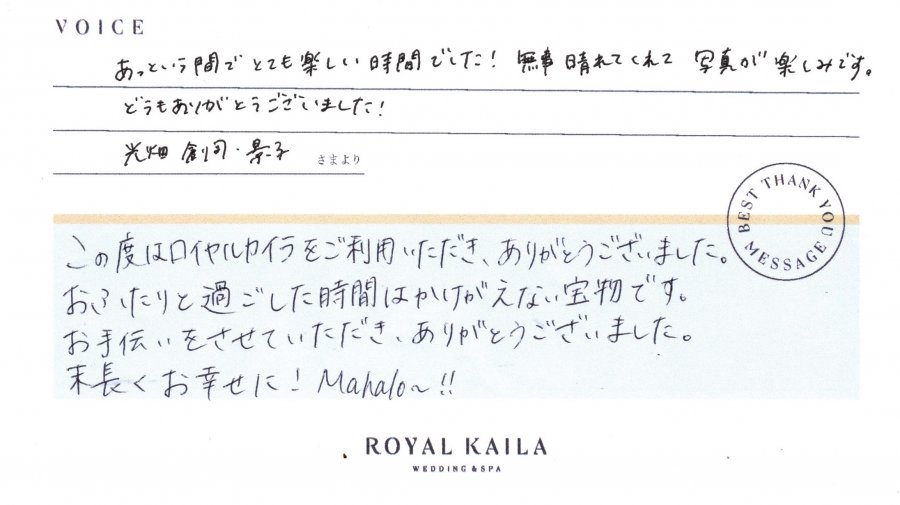 VOICE
あっという間で とても楽しい時間でした! 無事晴れてくれて 写真が楽しみです。
どうもありがとうございました!
光畑 創司・景子 さまより
BEST THANK YOU MESSAGE
この度はロイヤルカイラをご利用いただき、ありがとうございました。
おふたりと過ごした時間はかけがえない宝物です。
お手伝いをさせていただき、ありがとうございました。
末長くお幸せに! Mahalo~!!
ROYAL KAILA
WEDDING & SPA